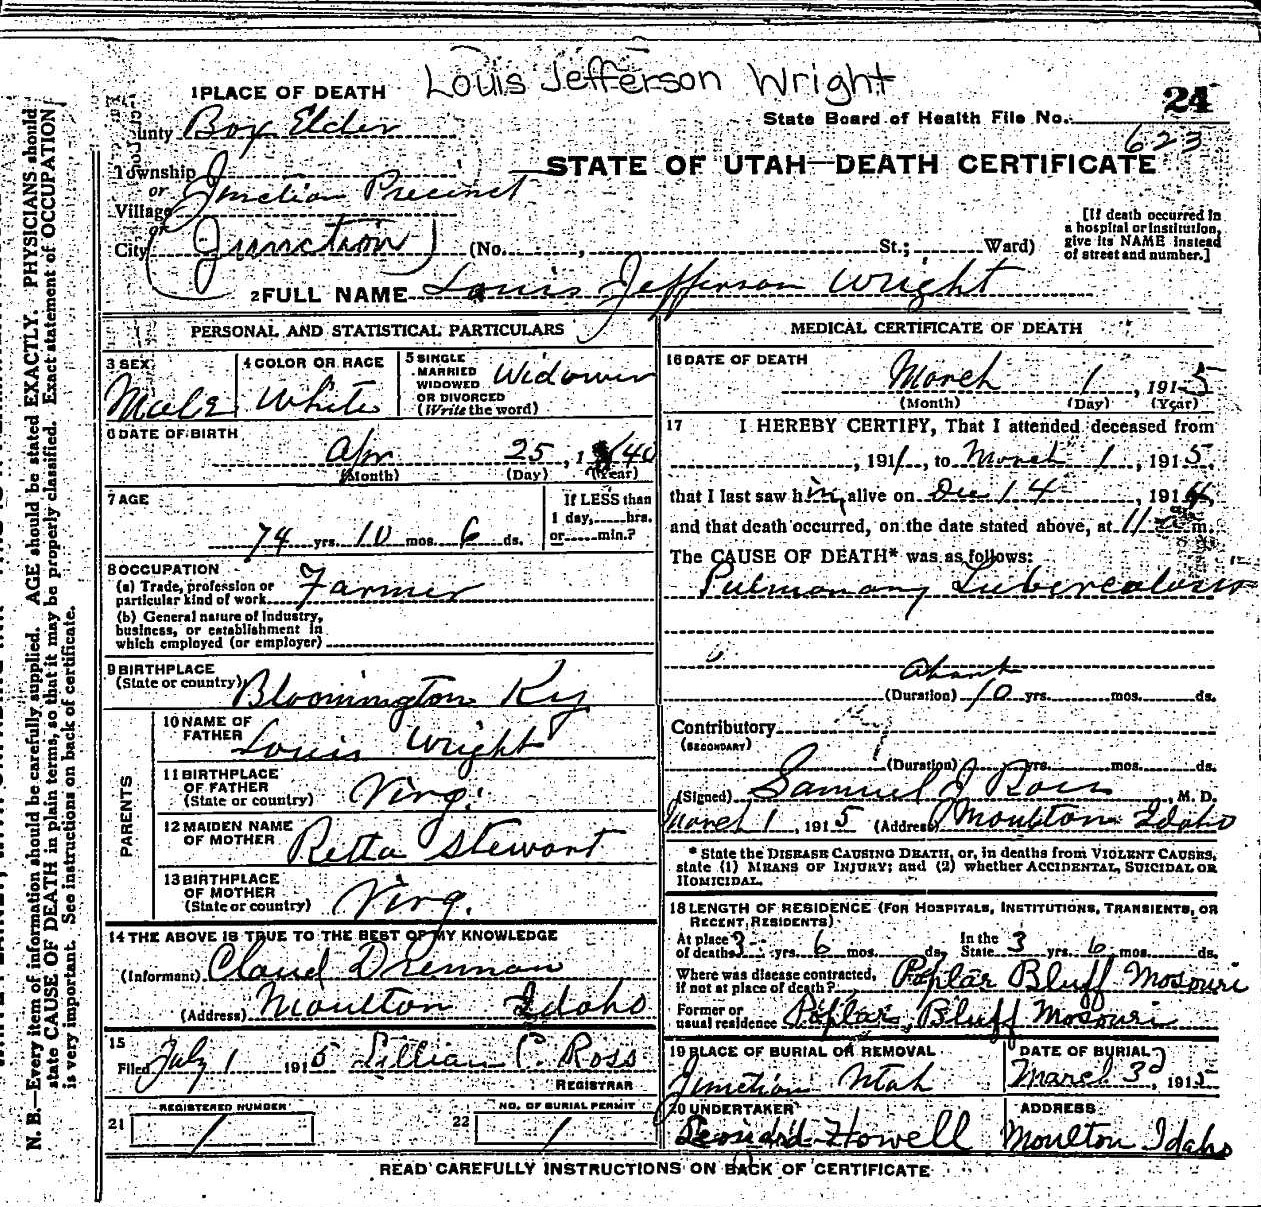 Louis Jefferson Wright
1 PLACE OF DEATH
24
State Board of Health File No. 623
County Box Elder
STATE OF UTAH—DEATH CERTIFICATE
Township
or
Village Junction Precinct
or
City (Junction) (No. , St.; Ward)
[If death occurred in
a hospital or institution,
give its NAME instead
of street and number.]
2 FULL NAME Louis Jefferson Wright
PERSONAL AND STATISTICAL PARTICULARS
3 SEX
Male
4 COLOR OR RACE
White
5 SINGLE
MARRIED
WIDOWED
OR DIVORCED
(Write the word)
Widower
6 DATE OF BIRTH
Apr 25, 1840
(Month) (Day) (Year)
7 AGE
74 yrs. 10 mos. 6 ds.
If LESS than
1 day, hrs.
or min.?
8 OCCUPATION
(a) Trade, profession or
particular kind of work Farmer
(b) General nature of industry,
business, or establishment in
which employed (or employer)
9 BIRTHPLACE
(State or country) Bloomington Ky
PARENTS
10 NAME OF
FATHER Louis Wright
11 BIRTHPLACE
OF FATHER
(State or country) Virg.
12 MAIDEN NAME
OF MOTHER Retta Stewart
13 BIRTHPLACE
OF MOTHER
(State or country) Virg.
14 THE ABOVE IS TRUE TO THE BEST OF MY KNOWLEDGE
(Informant) Claud Drennan
(Address) Moulton Idaho
15
Filed July 1 1915 Lillian C. Ross
REGISTRAR
21 REGISTERED NUMBER
1
22 NO. OF BURIAL PERMIT
1
MEDICAL CERTIFICATE OF DEATH
16 DATE OF DEATH
March 1, 1915
(Month) (Day) (Year)
17 I HEREBY CERTIFY, That I attended deceased from
, 191 , to March 1, 1915,
that I last saw him alive on Dec 14, 1914,
and that death occurred, on the date stated above, at 11 a m.
The CAUSE OF DEATH* was as follows:
Pulmonary Tuberculosis
about
(Duration) 10 yrs. mos. ds.
Contributory
(SECONDARY)
(Duration) yrs. mos. ds.
(Signed) Samuel J Ross, M. D.
March 1, 1915 (Address) Moulton Idaho
* State the DISEASE CAUSING DEATH, or, in deaths from VIOLENT CAUSES,
state (1) MEANS OF INJURY; and (2) whether ACCIDENTAL, SUICIDAL OR
HOMICIDAL.
18 LENGTH OF RESIDENCE (FOR HOSPITALS, INSTITUTIONS, TRANSIENTS, OR
RECENT RESIDENTS)
At place
of death 3 yrs. 6 mos. ds. In the
State 3 yrs. 6 mos. ds.
Where was disease contracted,
if not at place of death? Poplar Bluff Mosouri
Former or
usual residence Poplar Bluff Mosouri
19 PLACE OF BURIAL OR REMOVAL
Junction Utah
DATE OF BURIAL
March 3d, 1915
20 UNDERTAKER
Leonard Howell
ADDRESS
Moulton Idaho
READ CAREFULLY INSTRUCTIONS ON BACK OF CERTIFICATE
N. B.—Every item of information should be carefully supplied. AGE should be stated EXACTLY. PHYSICIANS should
state CAUSE OF DEATH in plain terms, so that it may be properly classified. Exact statement of OCCUPATION
is very important. See instructions on back of certificate.